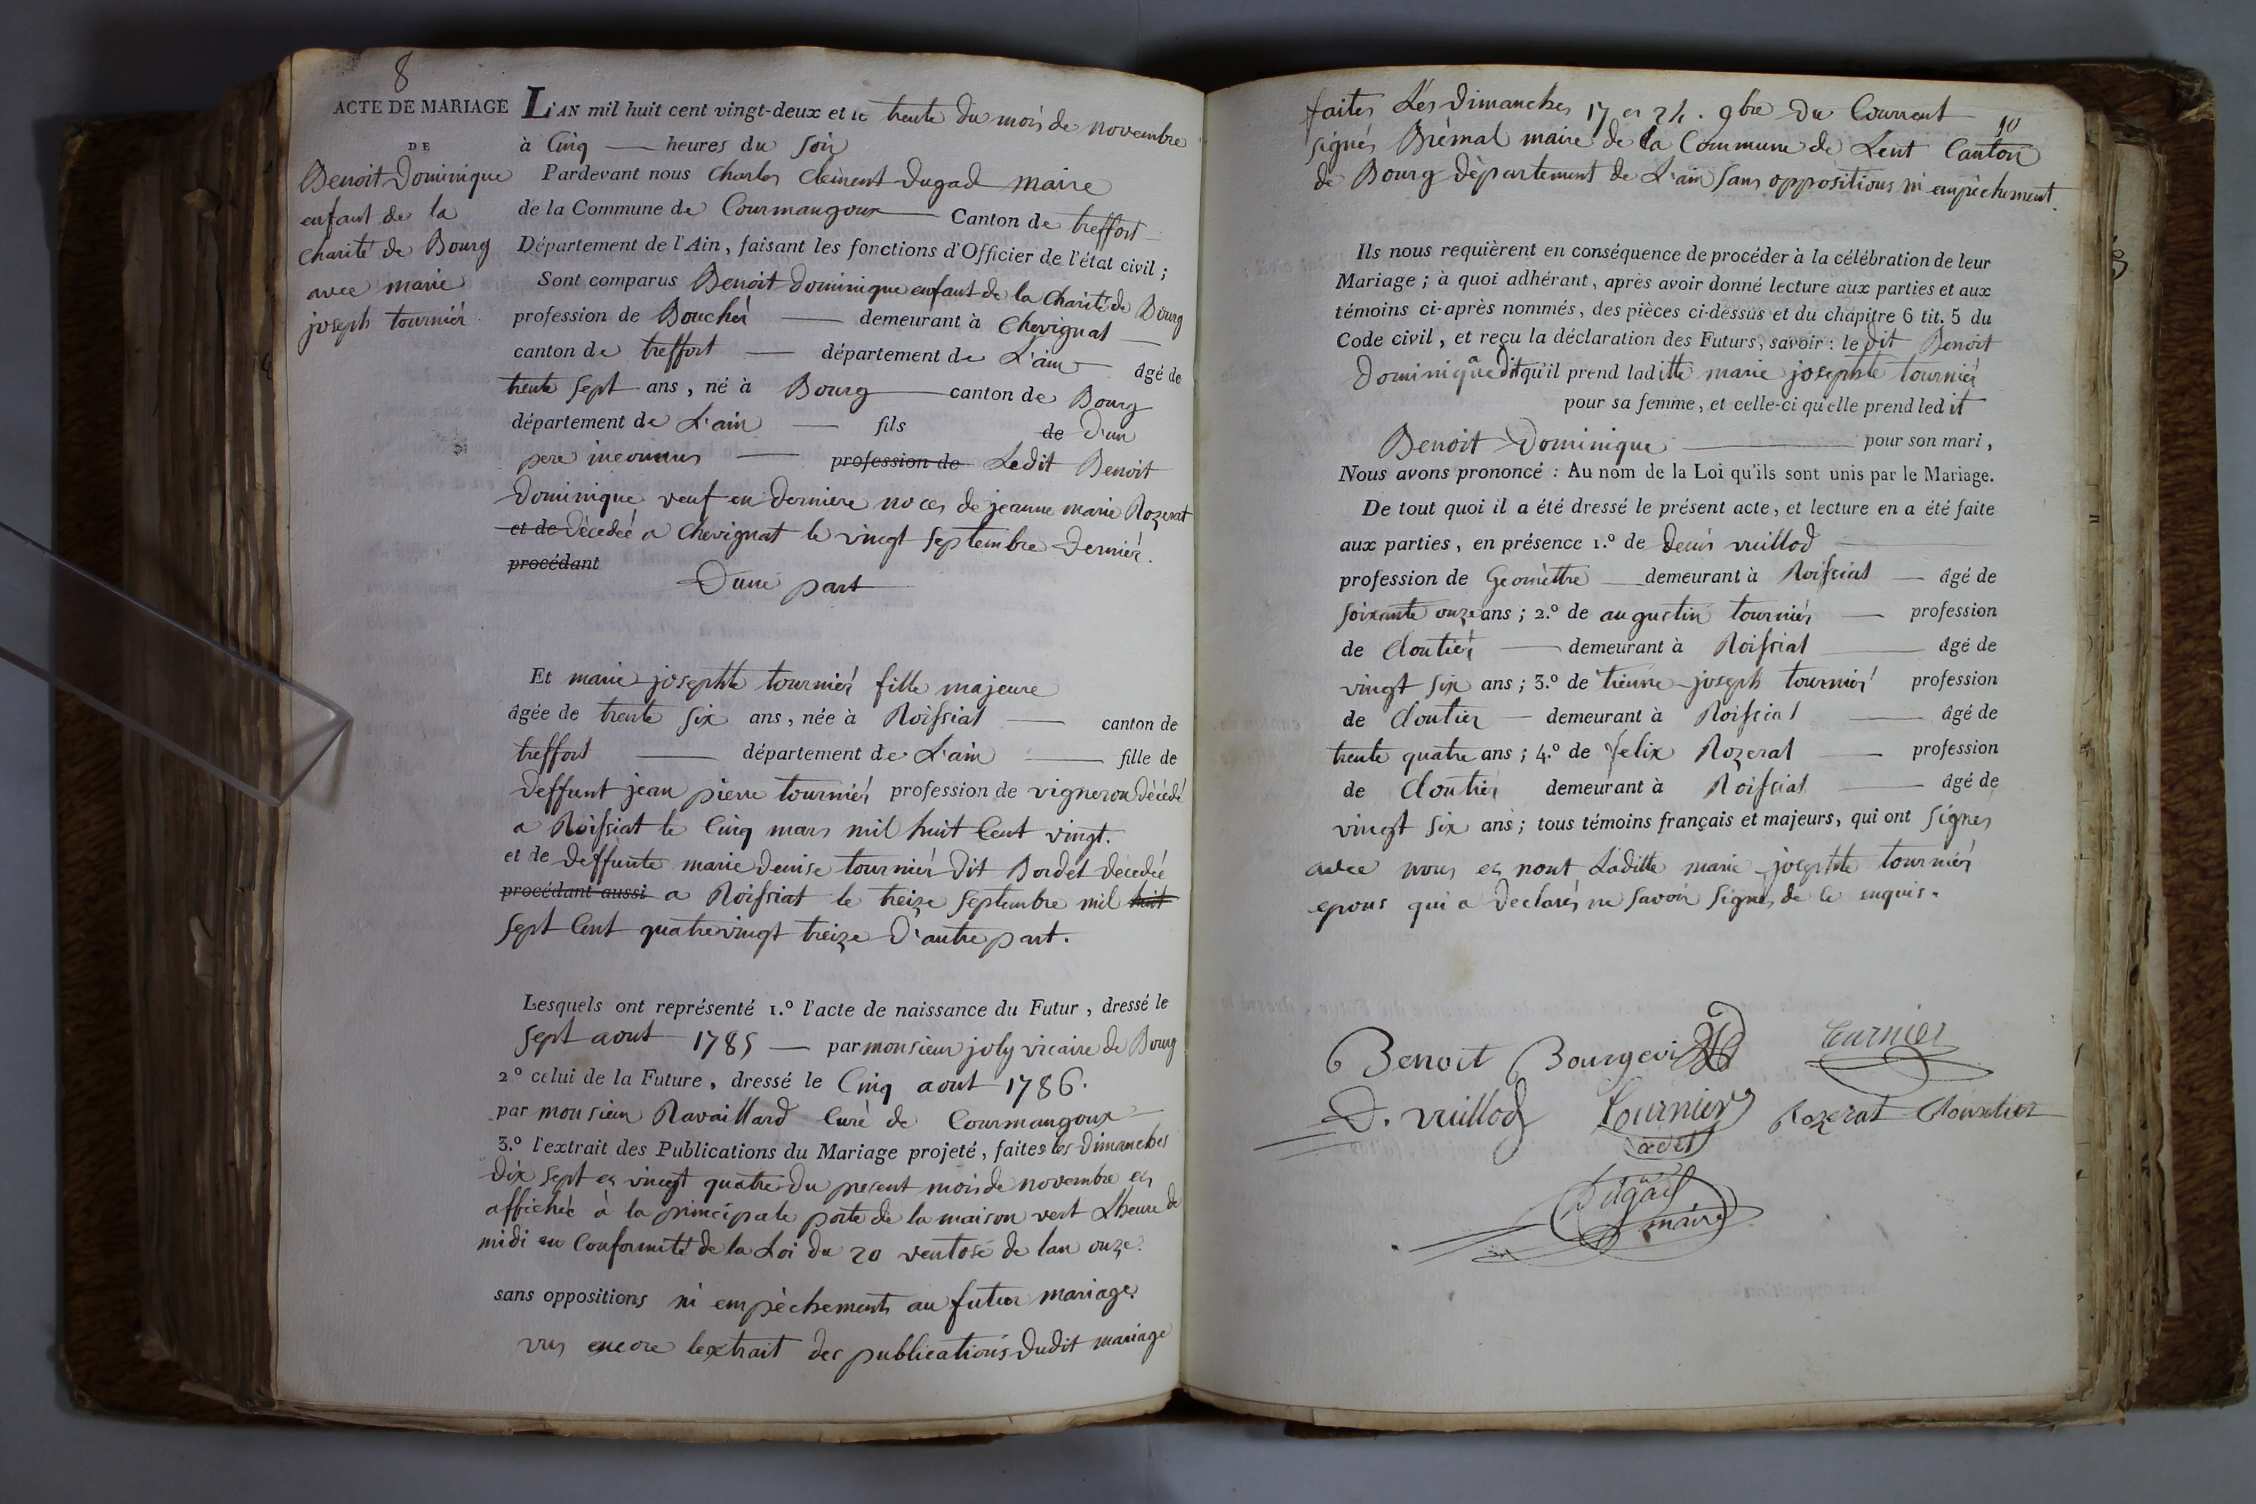 8
ACTE DE MARIAGE
DE
Benoit Dominique
enfant de la
Charité de Bourg
avec marie
joseph tournier
L'AN mil huit cent vingt-deux et le trente du mois de novembre
à Cinq heures du Soir
Pardevant nous Charles Clément Dugad maire
de la Commune de Courmangoux Canton de treffort
Département de l'Ain, faisant les fonctions d'Officier de l'état civil ;
Sont comparus Benoit Dominique enfant de la Charité de Bourg
profession de Boucher demeurant à Chevignat
canton de treffort département de L'ain âgé de
trente sept ans, né à Bourg canton de Bourg
département de L'ain fils de D'un
pere inconnus profession de Ledit Benoit
Dominique veuf en derniere noces de jeanne marie Rozerat
et de Décédéé a Chevignat le vingt Septembre Dernier.
procédant
D'une part
Et marie josephte tournier fille majeure
âgée de trente six ans, née à Roissiat canton de
treffort département de L'ain fille de
Deffunt jean pierre tournier profession de vigneron Décédé
a Roissiat le Cinq mars mil huit Cent vingt.
et de Deffunte marie Denise tournier Dit Bordet Décedeé
procédant aussi a Roissiat le treize Septembre mil huit
Sept Cent quatrevingt treize D'autre part.
Lesquels ont représenté 1.º l'acte de naissance du Futur, dressé le
Sept aout 1785 par monsieur joly vicaire de Bourg
2º celui de la Future, dressé le Cinq aout 1786.
par monsieur Ravaillard Curé de Courmangoux
3.º l'extrait des Publications du Mariage projeté, faites les Dimanches
Dix sept et vingt quatre Du present mois de novembre et
affichéé à la principale porte de la maison vert Lheure de
midi en Conformité de la Loi du 20 ventose de lan onze.
sans oppositions ni empèchements au futur mariage.
vus encore lextrait des publications Dudit mariage
10
faites Les Dimanches 17 et 24. 9bre Du Courrent
signés Brémal maire de la Commune de Lent Canton
de Bourg Département de L'ain Sans oppositions ni empèchement.
Ils nous requièrent en conséquence de procéder à la célébration de leur
Mariage ; à quoi adhérant, après avoir donné lecture aux parties et aux
témoins ci-après nommés, des pièces ci-dessus et du chapitre 6 tit. 5 du
Code civil, et reçu la déclaration des Futurs, savoir : le dit Benoit
Dominique a Dit qu'il prend laditte marie josephte tournier
pour sa femme, et celle-ci qu'elle prend ledit
Benoit Dominique pour son mari,
Nous avons prononcé : Au nom de la Loi qu'ils sont unis par le Mariage.
De tout quoi il a été dressé le présent acte, et lecture en a été faite
aux parties, en présence 1.º de Denis vuillod
profession de Geomettre demeurant à Roissiat âgé de
soixante onze ans ; 2.º de augustin tournier profession
de Cloutier demeurant à Roissiat âgé de
vingt six ans ; 3.º de tienne joseph tournier profession
de Cloutier demeurant à Roissiat âgé de
trente quatre ans ; 4.º de felix Rozerat profession
de Cloutier demeurant à Roissiat âgé de
vingt six ans ; tous témoins français et majeurs, qui ont signes
avec nous et nont Laditte marie josephte tournier
epous qui a Declarés ne savoir signer de ce enquis.
Benoit Bourgeois tournier
D. vuillod tournier Rozerat Cloutier
Dugad
maire